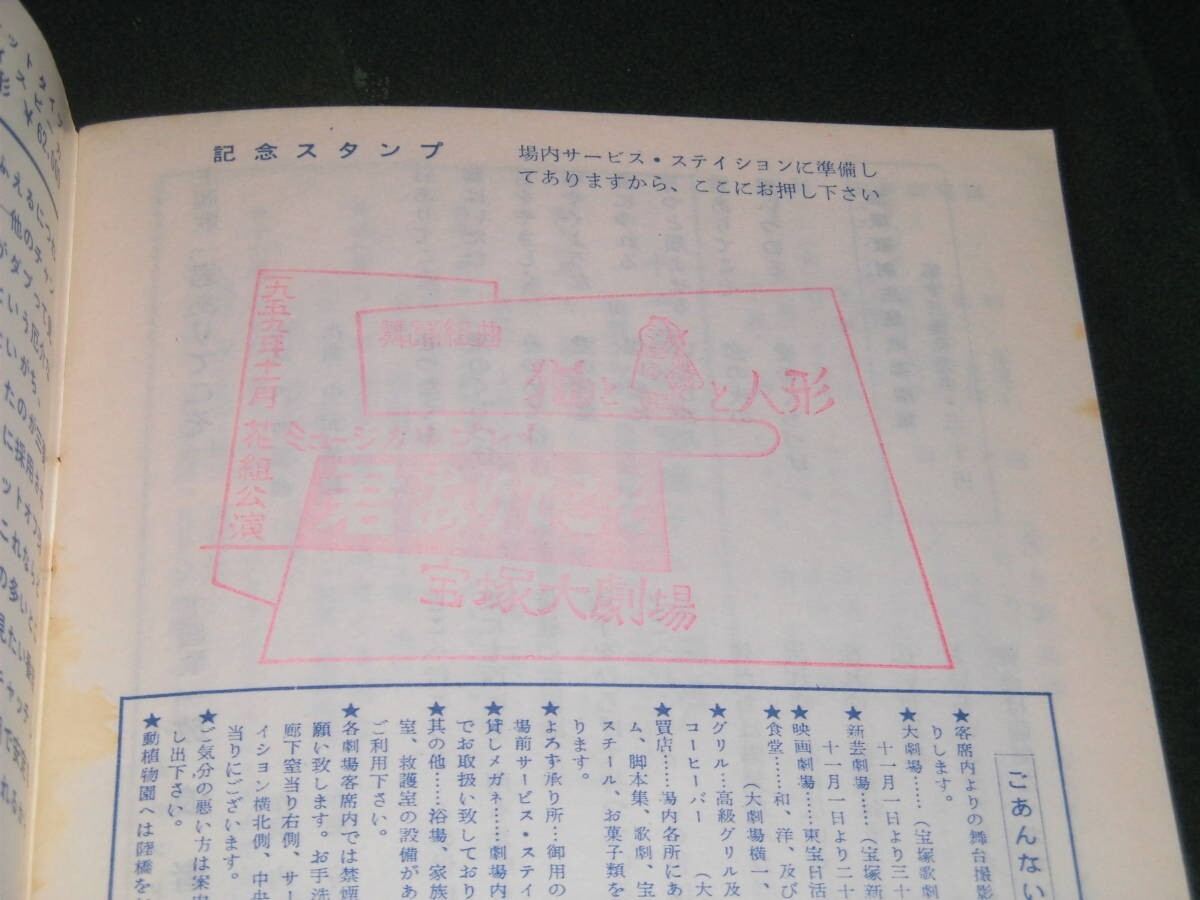 記念スタンプ
場内サービス・ステイションに準備し
てありますから、ここにお押し下さい
一九五九年十一月 花組公演
舞踊組曲
猫と と人形
ミュージカル・プレイ
君ありてこそ
宝塚大劇場
ごあんない
★客席内よりの舞台撮影
りします。
★大劇場……(宝塚歌劇
十一月一日より三十
★新芸劇場……(宝塚新
十一月一日より二十
★映画劇場……東宝日活
★食堂……和、洋、及び
(大劇場横一、
★グリル…高級グリル及
コーヒーバー (大
★買店……場内各所にあ
ム、脚本集、歌劇、宝
スチール、お菓子類を
ります。
★よろず承り所…御用の
場前サービス・ステイ
★貸しメガネ……劇場内
でお取扱い致しており
★其の他……浴場、家族
室、救護室の設備があ
ご利用下さい。
★各劇場客席内では禁煙
願い致します。お手洗
廊下室当り右側、サー
イション横北側、中央
当りにございます。
★ご気分の悪い方は案内
し出下さい。
★動植物園へは陸橋を
ットタイプ
形 ￥62,000
かえるにつれ
他のチャン
がダブって見
という厄介な
に採用
ットオフ
これなら
の多いと
見たい
チャッチ